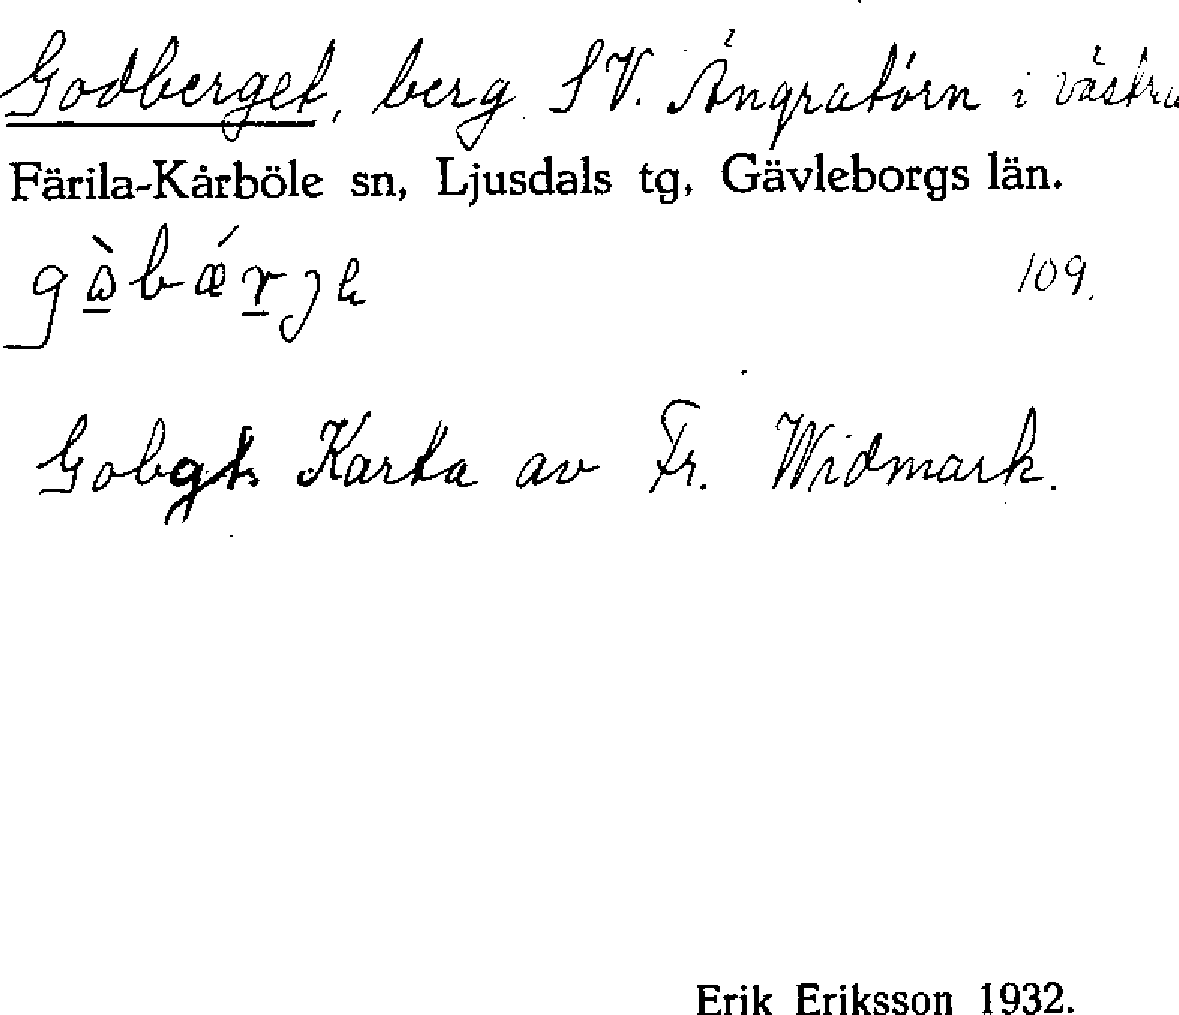 Godberget, berg SV. Ängratörn i västra
Färila-Kårböle sn, Ljusdals tg, Gävleborgs län.
109.
Gobgt. Karta av Fr. Widmark.
Erik Eriksson 1932.